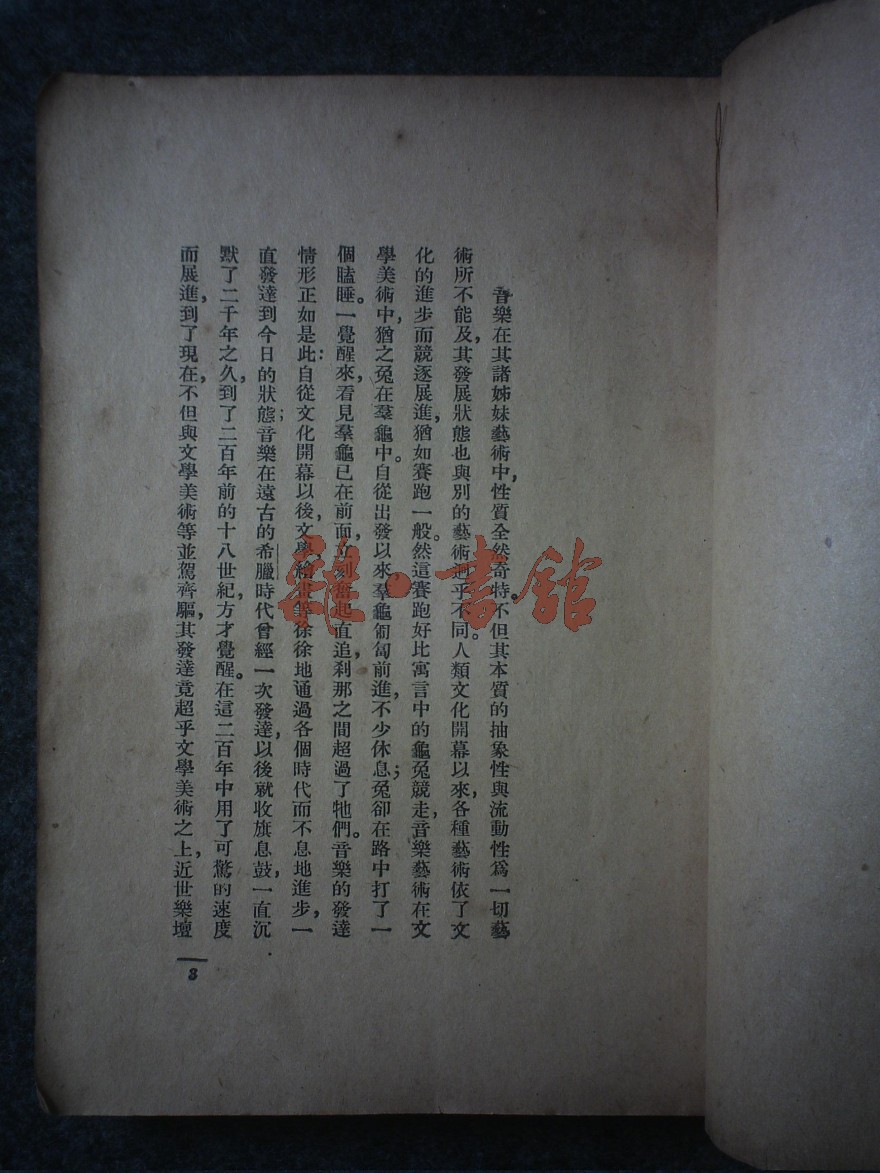 音樂在其諸姊妹藝術中，性質全然奇特。不但其本質的抽象性與流動性爲一切藝
術所不能及，其發展狀態也與別的藝術迥乎不同。人類文化開幕以來，各種藝術依了文
化的進步而競逐展進，猶如賽跑一般。然這賽跑好比寓言中的龜兔競走，音樂藝術在文
學美術中，猶之兔在羣龜中。自從出發以來，羣龜匍匐前進，不少休息；兔卻在路中打了一
個瞌睡。一覺醒來，看見羣龜已在前面，立刻奮起直追，刹那之間超過了牠們。音樂的發達
情形正如是此：自從文化開幕以後，文學，繪畫等徐徐地通過各個時代而不息地進步，一
直發達到今日的狀態；音樂在遠古的希臘時代曾經一次發達，以後就收旗息鼓，一直沉
默了二千年之久，到了二百年前的十八世紀，方才覺醒。在這二百年中用了可驚的速度
而展進，到了現在，不但與文學美術等並駕齊驅，其發達竟超乎文學美術之上，近世樂壇
3
雜·書館